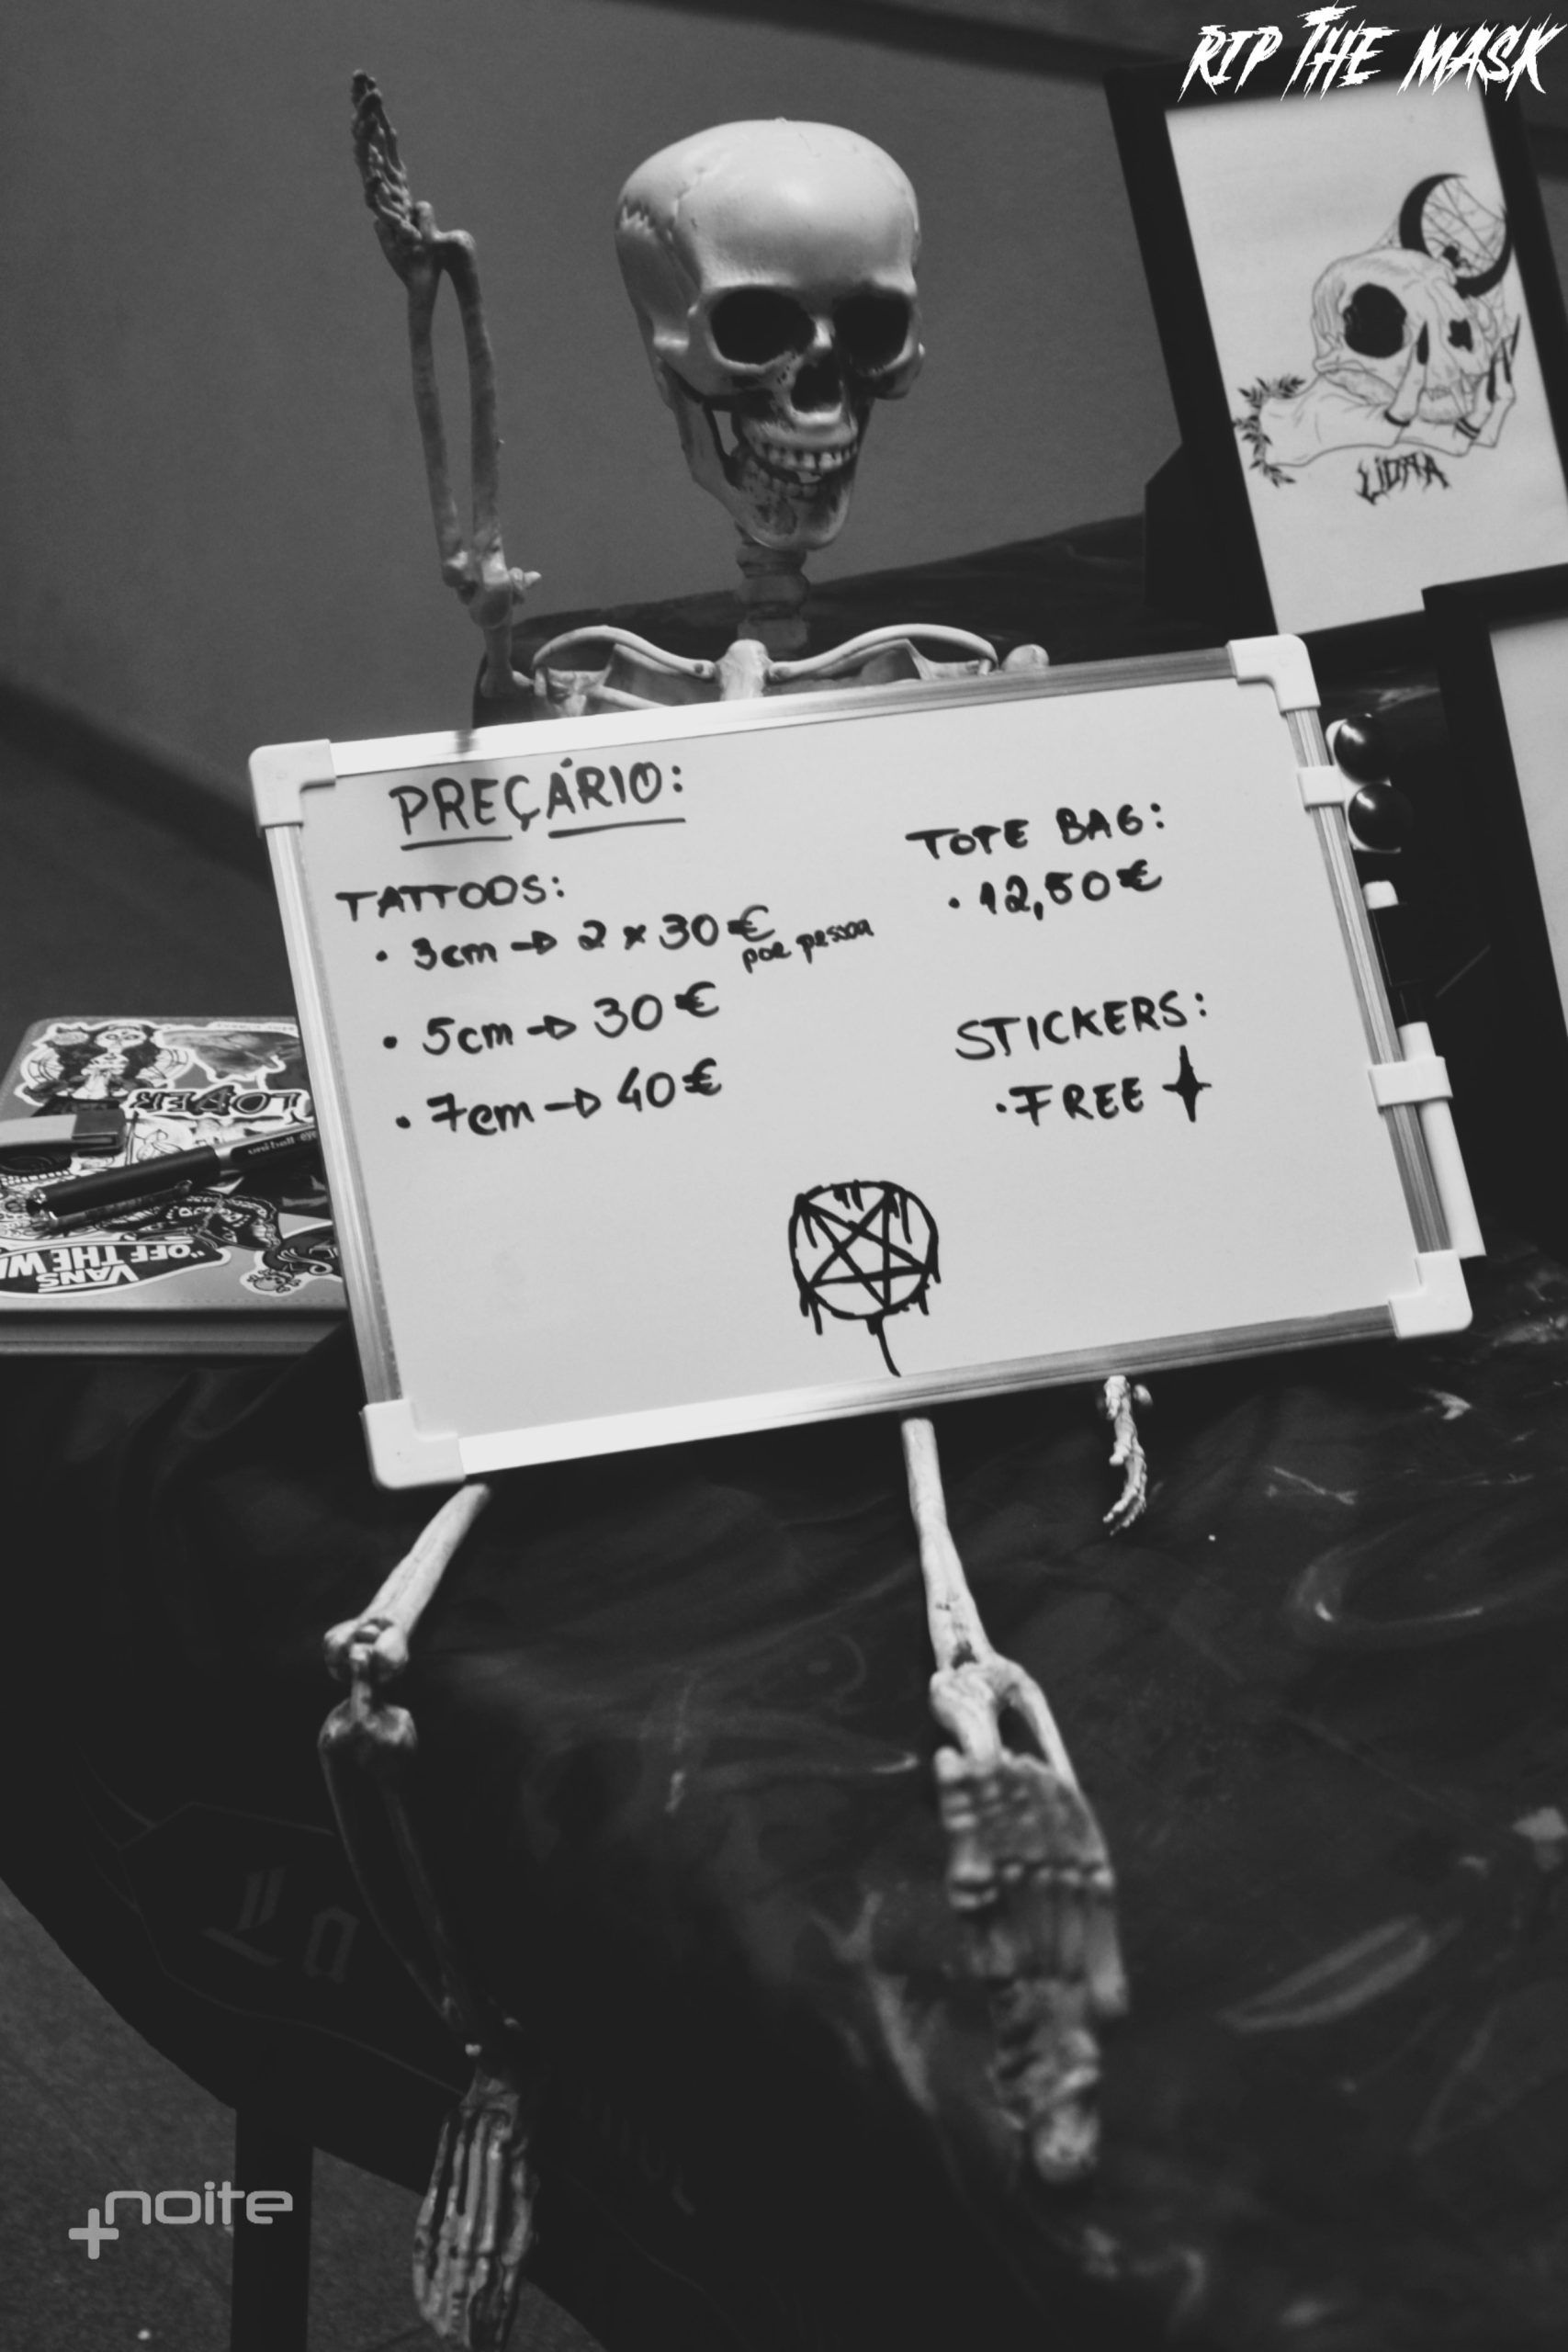 RIP THE MASK
LIDRA
PREÇÁRIO:
TATTOOS:
• 3cm → 2 x 30€
por pessoa
• 5cm → 30€
• 7cm → 40€
TOTE BAG:
• 12,50€
STICKERS:
• FREE
LOVER
VANS
"OFF THE W
La
+noite